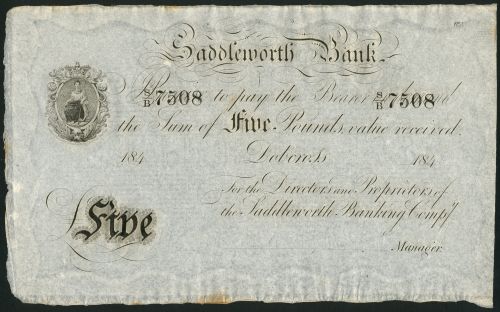 Saddleworth Bank
S/B 7508 to pay the Bearer S/B 7508
the Sum of Five Pounds, value received.
184 Dobcross 184
For the Directors and Proprietors of
£Five the Saddleworth Banking Compy
Manager